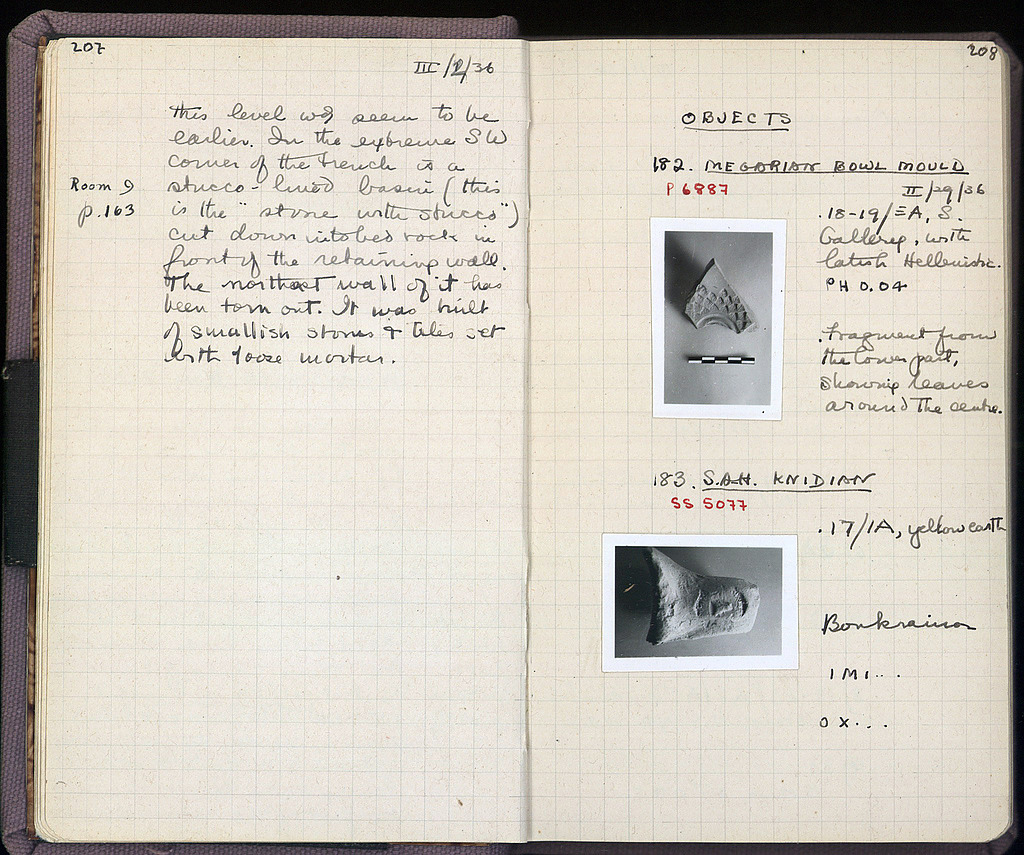 207
III/2/36
this level wd seem to be
earlier. In the extreme SW
corner of the trench is a
Room 9 stucco-lined basin (this
p.163 is the "stone with stucco")
cut down into bedrock in
front of the retaining wall.
The northeast wall of it has
been torn out. It was built
of smallish stones & tiles set
with loose mortar.
208
OBJECTS
182. MEGARIAN BOWL MOULD
P 6887
II/29/36
.18-19/ΞA, S.
Gallery, with
latish Hellenistic.
PH 0.04
.Fragment from
the lower part,
showing leaves
around the centre.
183. S.A.H. KNIDIAN
SS 5077
.17/IA, yellow earth
Boukranion
IMI...
OX...